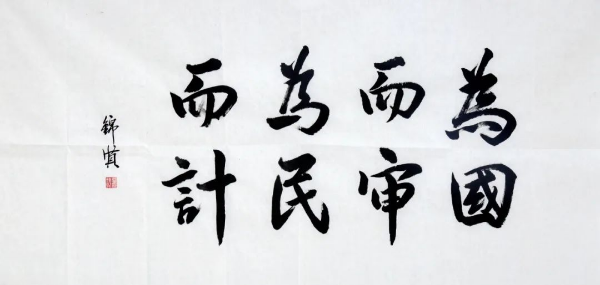 為國
而审
為民
而計
錦慎